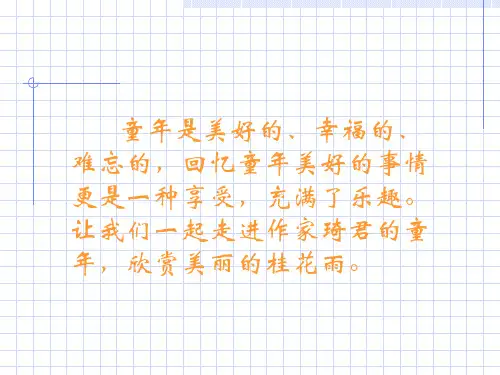 童年是美好的、幸福的、
难忘的，回忆童年美好的事情
更是一种享受，充满了乐趣。
让我们一起走进作家琦君的童
年，欣赏美丽的桂花雨。